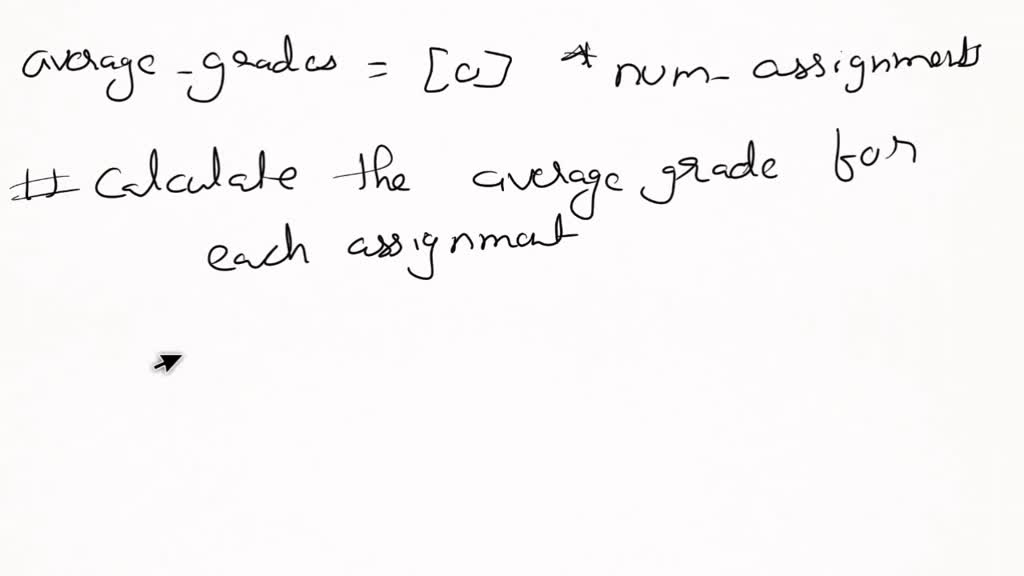 average_grades = [0] * num_assignments
# Calculate the average grade for
each assignment